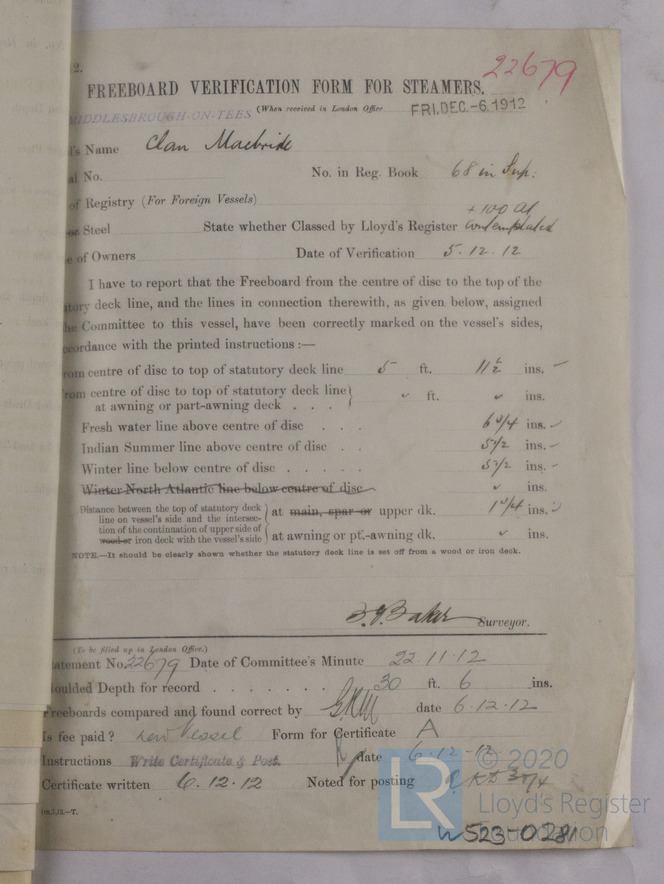 2.
22679
FREEBOARD VERIFICATION FORM FOR STEAMERS.
(When received in London Office FRI. DEC. -6. 1912
MIDDLESBROUGH-ON-TEES
's Name Clan Macbride
al No. No. in Reg. Book 68 in Sup:
of Registry (For Foreign Vessels)
+100 A1
or Steel State whether Classed by Lloyd's Register contemplated
e of Owners Date of Verification 5.12.12
I have to report that the Freeboard from the centre of disc to the top of the
tory deck line, and the lines in connection therewith, as given below, assigned
he Committee to this vessel, have been correctly marked on the vessel's sides,
cordance with the printed instructions :—
rom centre of disc to top of statutory deck line 5 ft. 11½ ins.
rom centre of disc to top of statutory deck line
at awning or part-awning deck . . . ft. ins.
Fresh water line above centre of disc . . . 6 3/4 ins.
Indian Summer line above centre of disc . . 5 1/2 ins.
Winter line below centre of disc . . . . . 5 1/2 ins.
Winter North Atlantic line below centre of disc ins.
Distance between the top of statutory deck
line on vessel's side and the intersec-
tion of the continuation of upper side of
wood or iron deck with the vessel's side
at main, spar or upper dk. 1 3/4 ins.
at awning or pt.-awning dk. ins.
NOTE.—It should be clearly shown whether the statutory deck line is set off from a wood or iron deck.
Baker Surveyor.
(To be filled up in London Office.)
atement No. 22679 Date of Committee's Minute 22.11.12
oulded Depth for record . . . . . . . 30 ft. 6 ins.
reeboards compared and found correct by date 6.12.12
Is fee paid? new Vessel Form for Certificate A
Instructions Write Certificate & Post. date 6.12.12
Certificate written 6.12.12 Noted for posting
© 2020
LR
Lloyd's Register
Foundation
W523-0281